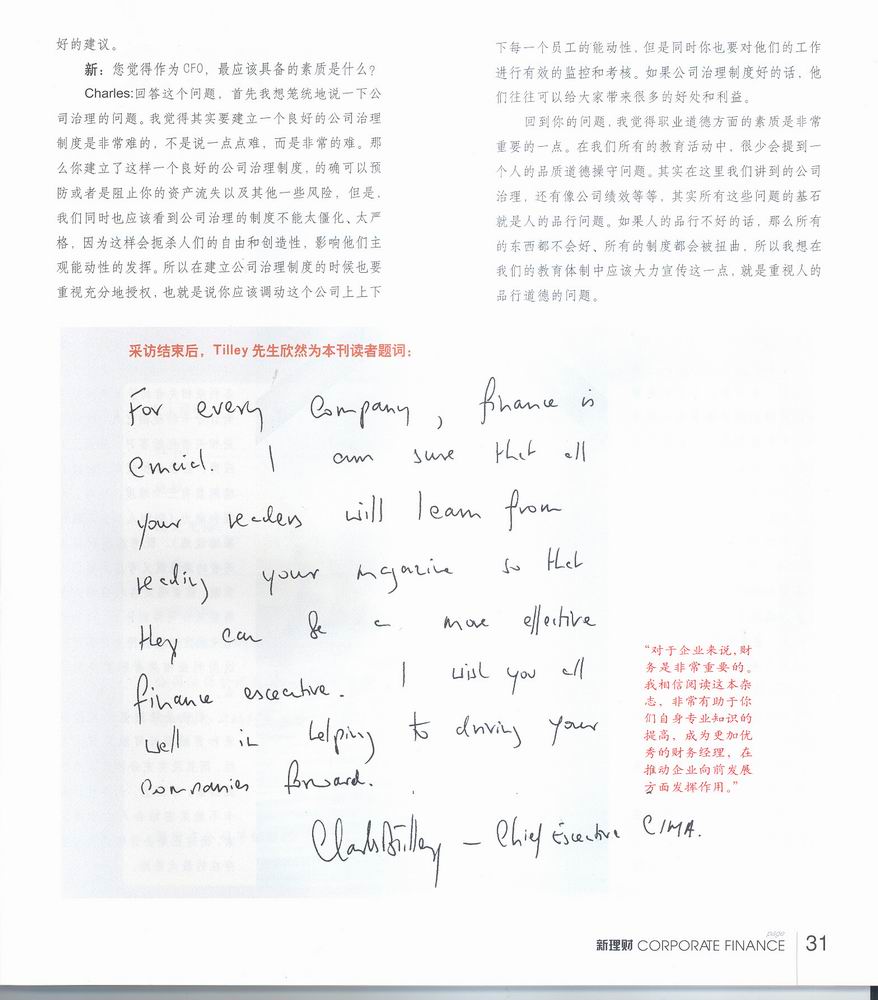 好的建议。
新：您觉得作为 CFO，最应该具备的素质是什么？
Charles:回答这个问题，首先我想笼统地说一下公
司治理的问题。我觉得其实要建立一个良好的公司治理
制度是非常难的，不是说一点点难，而是非常的难。那
么你建立了这样一个良好的公司治理制度，的确可以预
防或者是阻止你的资产流失以及其他一些风险，但是，
我们同时也应该看到公司治理的制度不能太僵化、太严
格，因为这样会扼杀人们的自由和创造性，影响他们主
观能动性的发挥。所以在建立公司治理制度的时候也要
重视充分地授权，也就是说你应该调动这个公司上上下
下每一个员工的能动性，但是同时你也要对他们的工作
进行有效的监控和考核。如果公司治理制度好的话，他
们往往可以给大家带来很多的好处和利益。
回到你的问题，我觉得职业道德方面的素质是非常
重要的一点。在我们所有的教育活动中，很少会提到一
个人的品质道德操守问题。其实在这里我们讲到的公司
治理，还有像公司绩效等等，其实所有这些问题的基石
就是人的品行问题。如果人的品行不好的话，那么所有
的东西都不会好、所有的制度都会被扭曲，所以我想在
我们的教育体制中应该大力宣传这一点，就是重视人的
品行道德的问题。
采访结束后，Tilley 先生欣然为本刊读者题词：
For every company, finance is
crucial. I am sure that all
your readers will learn from
reading your magazine so that
they can be a more effective
finance executive. I wish you all
well in helping to driving your
companies forward.
Charles Tilley – Chief Executive CIMA.
“对于企业来说，财
务是非常重要的。
我相信阅读这本杂
志，非常有助于你
们自身专业知识的
提高，成为更加优
秀的财务经理，在
推动企业向前发展
方面发挥作用。”
page
新理财 CORPORATE FINANCE 31